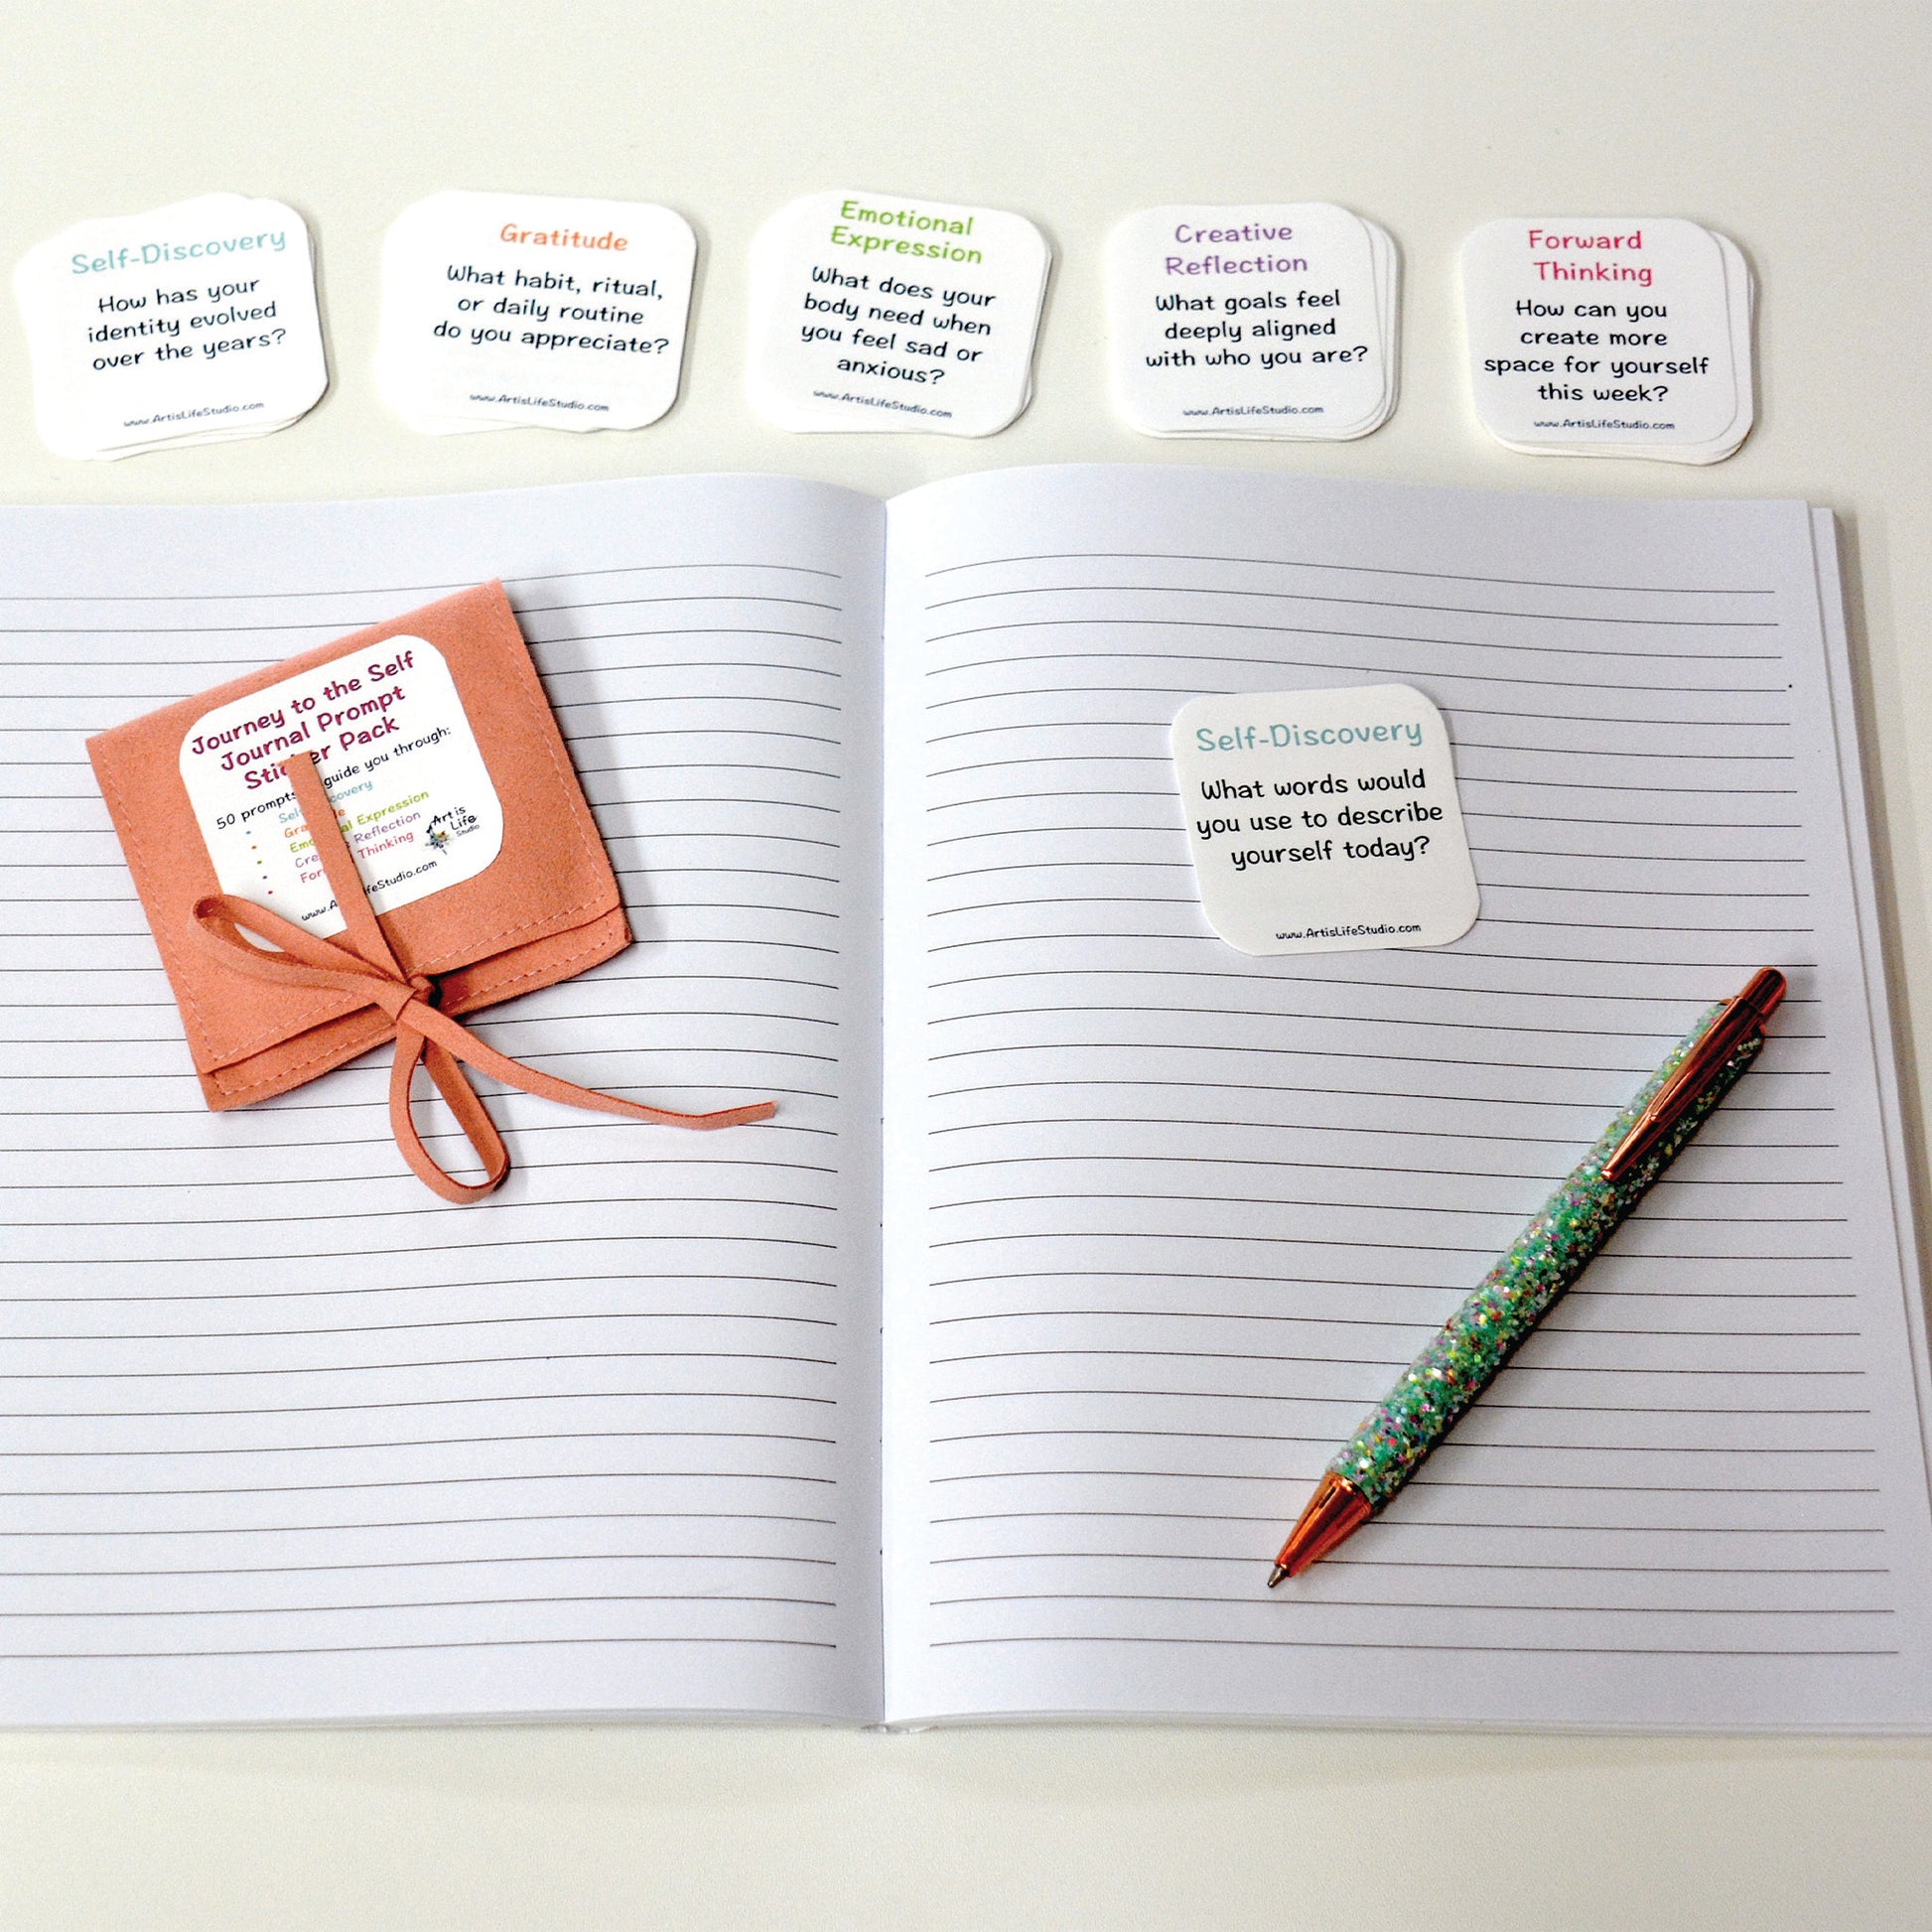 Self-Discovery
How has your
identity evolved
over the years?
www.ArtisLifeStudio.com
Gratitude
What habit, ritual,
or daily routine
do you appreciate?
www.ArtisLifeStudio.com
Emotional
Expression
What does your
body need when
you feel sad or
anxious?
www.ArtisLifeStudio.com
Creative
Reflection
What goals feel
deeply aligned
with who you are?
www.ArtisLifeStudio.com
Forward
Thinking
How can you
create more
space for yourself
this week?
www.ArtisLifeStudio.com
Journey to the Self
Journal Prompt
Pack
50 prompts guide you through:
Expression
Reflection
Thinking
Art is
Life
Studio
Self-Discovery
What words would
you use to describe
yourself today?
www.ArtisLifeStudio.com